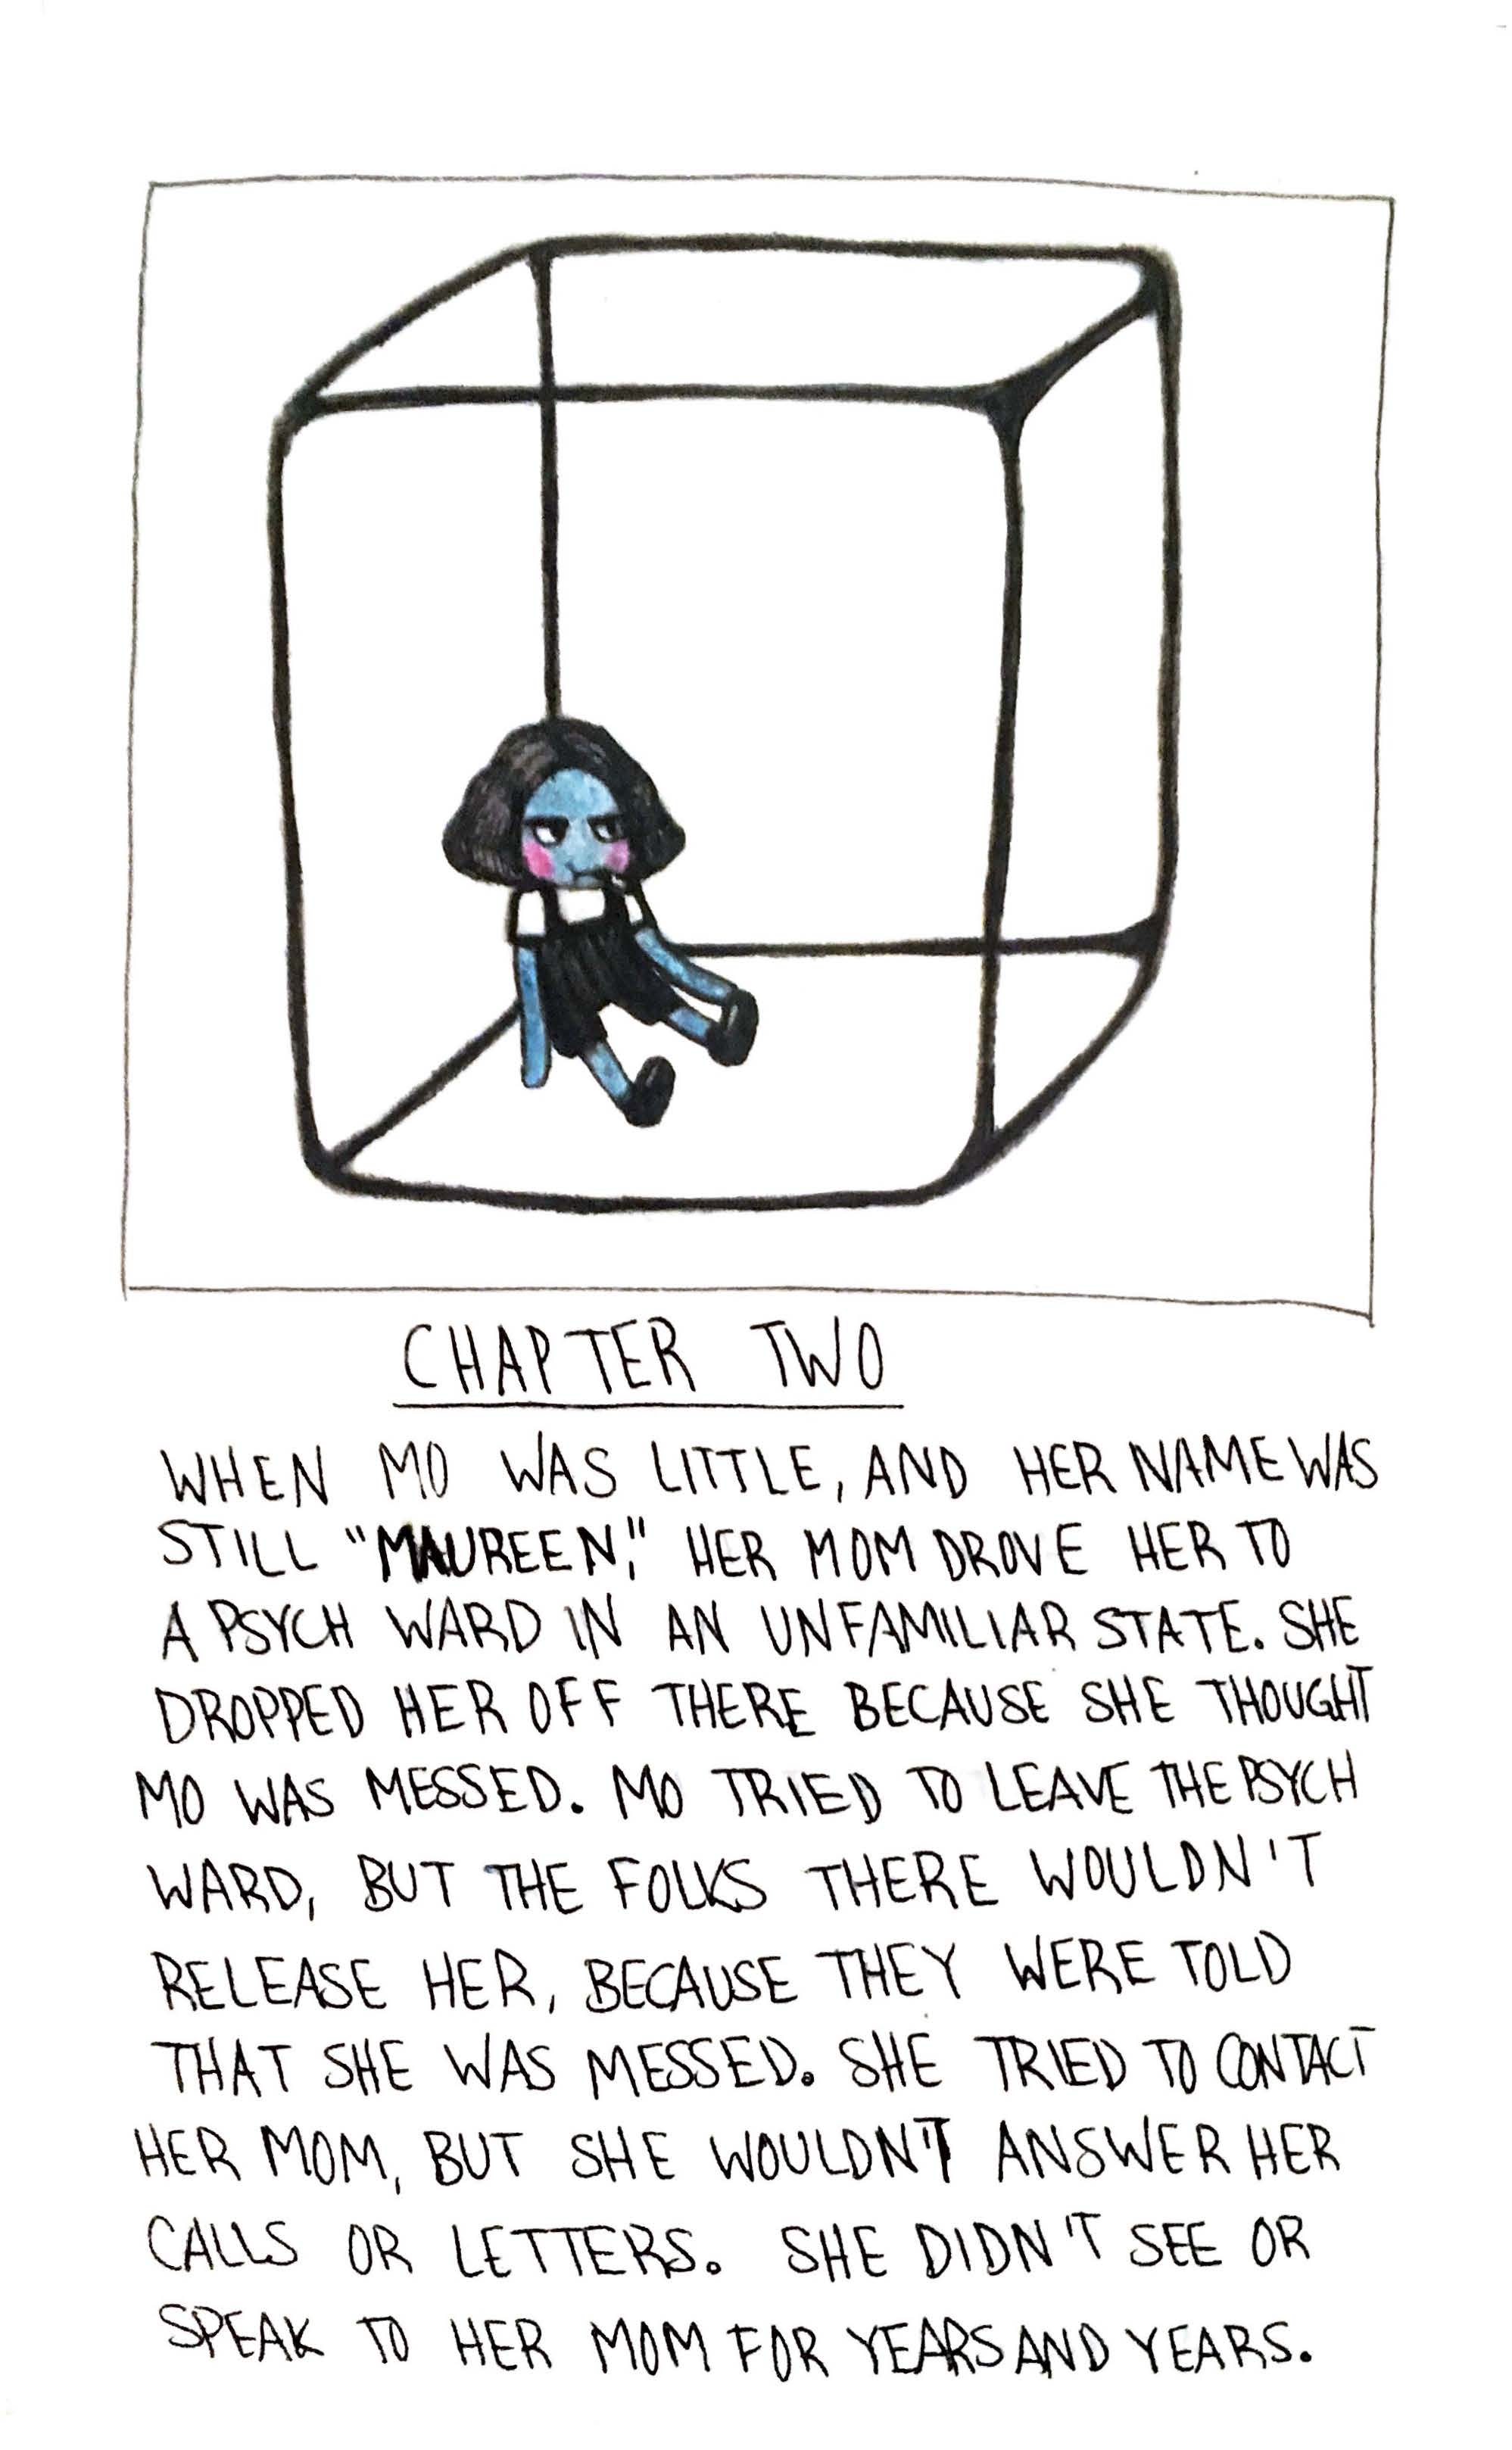 CHAPTER TWO
WHEN MO WAS LITTLE, AND HER NAME WAS
STILL "MAUREEN," HER MOM DROVE HER TO
A PSYCH WARD IN AN UNFAMILIAR STATE. SHE
DROPPED HER OFF THERE BECAUSE SHE THOUGHT
MO WAS MESSED. MO TRIED TO LEAVE THE PSYCH
WARD, BUT THE FOLKS THERE WOULDN'T
RELEASE HER, BECAUSE THEY WERE TOLD
THAT SHE WAS MESSED. SHE TRIED TO CONTACT
HER MOM, BUT SHE WOULDN'T ANSWER HER
CALLS OR LETTERS. SHE DIDN'T SEE OR
SPEAK TO HER MOM FOR YEARS AND YEARS.